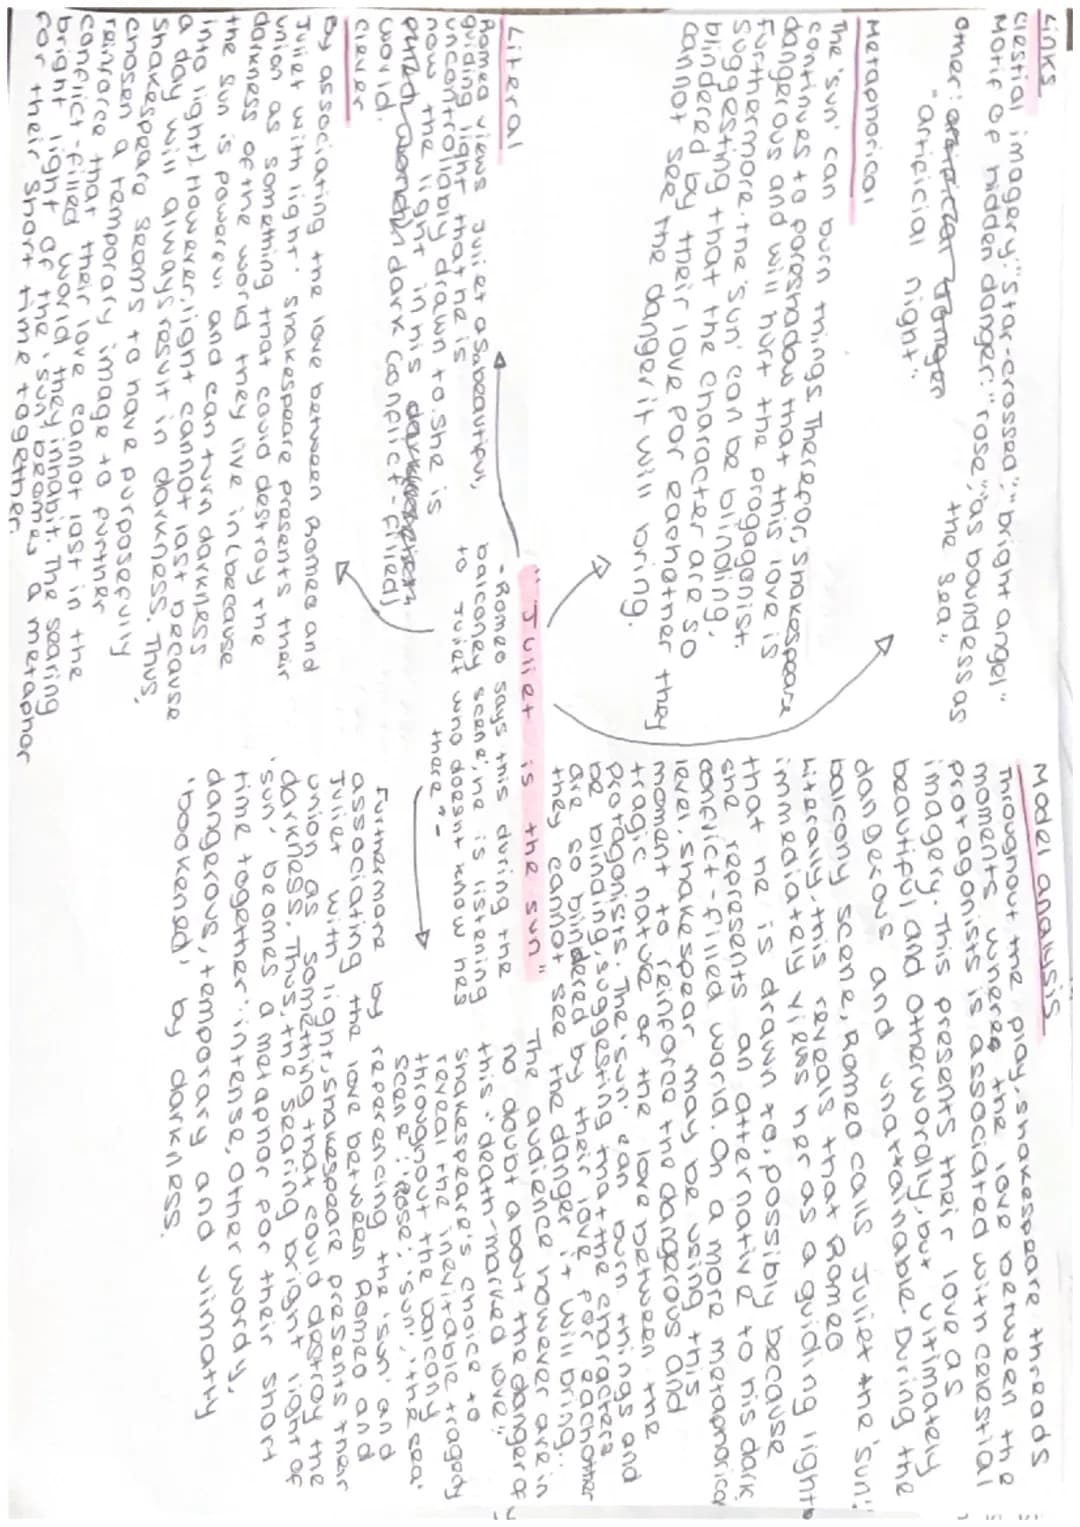 Links
clestial imagery: "Star-crossed" "bright angel"
Motif of hidden danger: "rose," "as boundess as
the sea"
other:
"artificial night"
Metaphorical
The 'sun' can burn things. Therefor, shakespeare
continues to foreshadow that this love is
dangerous and will hurt the progagenist.
Furthermore, the 'sun' can be blinding,
suggesting that the character are so
blindered by their love for eachother they
cannot see the danger it will bring.
Literal
Romeo views Juliet as a beautiful,
guiding light that he is
uncontrollably drawn to. She is
now the light in his
dark (conflict-filled)
world.
Clever
By associating the love between Romeo and
Juliet with light. Shakespeare presents their
union as something that could destroy the
darkness of the world they live in (because
the sun is powerful and can turn darkness
into light). However, light cannot last because
a day will always result in darkness. Thus,
Shakespeare seems to have purposefully
chosen a temporary image to further
reinforce that their love cannot last in the
conflict-filled world they inhabit. The searing
bright light of the 'sun' becomes a metaphor
for their short time together.
"Juliet is the sun"
- Romeo says this during the
balconey scene, he is listening
to Juliet who doesnt know hes
there. -
Model analysis
Throughout the play, shakespeare threads
moments where the love between the
protagonists is associated with celestial
imagery. This presents their love as
beautiful and otherworldly, but ultimately
dangerous and unattainable. During the
balcony scene, Romeo calls Juliet the 'sun'.
Literally, this reveals that Romeo
immediately views her as a guiding light
that he is drawn to, possibly because
she represents an alternative to his dark,
conflict-filled world. On a more metaphorical
level, shakespear may be using this
moment to reinforce the dangerous and
tragic nature of the love between the
protagonists. The 'sun' can burn things and
be blinding, suggesting that the characters
are so blindered by their love for eachother
they cannot see the danger it will bring.
The audience however are in
no doubt about the danger of
this "death-marked love".
Shakespeare's choice to
reveal the inevitable tragedy
throughout the balcony
scene: 'Rose', 'sun', 'the sea'
Furthermore by referencing the 'sun' and
associating the love between Romeo and
Juliet with light, Shakespeare presents their
union as something that could destroy the
darkness. Thus, the searing bright light of
'sun' becomes a metaphor for their short
time together: intense, otherwordly,
dangerous, temporary and ultimatly
'bookended' by darkness.